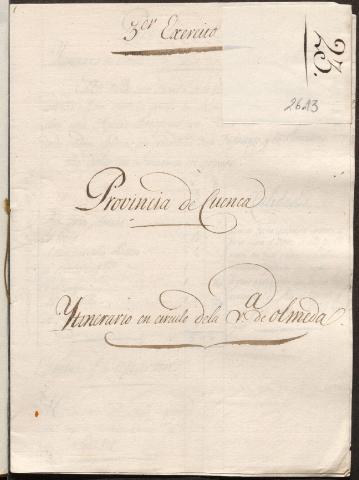 3er Exercito
23.
2613
Provincia de Cuenca
Ytinerario en circulo de la Va de olmeda.